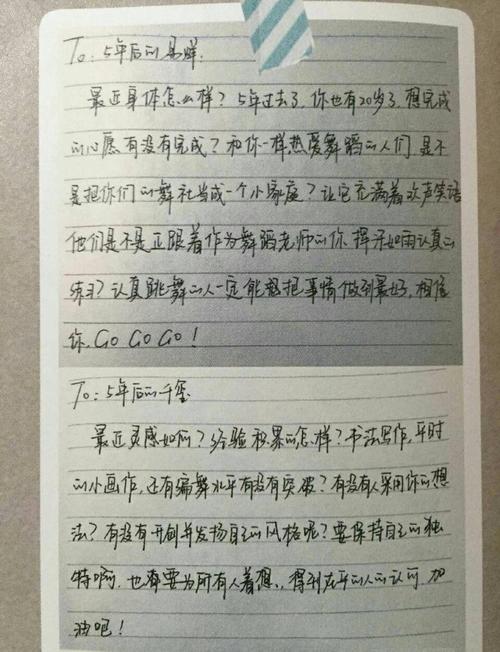 To：5年后的易烊.
最近身体怎么样？5年过去了，你也有20岁了，想完成
的心愿有没有完成？和你一样热爱舞蹈的人们，是不
是把你们的舞社当成一个小家庭？让它充满着欢声笑语
他们是不是正跟着作为舞蹈老师的你，挥汗如雨认真的
练习？认真跳舞的人一定能够把事情做到最好，相信
你，GO GO GO！
To：5年后的千玺
最近灵感如何？经验积累的怎样？书法写作，平时
的小画作，还有编舞水平有没有突破？有没有人采用你的想
法？有没有开创并发扬自己的风格呢？要保持自己的独
特啊，也需要为所有人着想，得到在乎的人的认可，加
油吧！